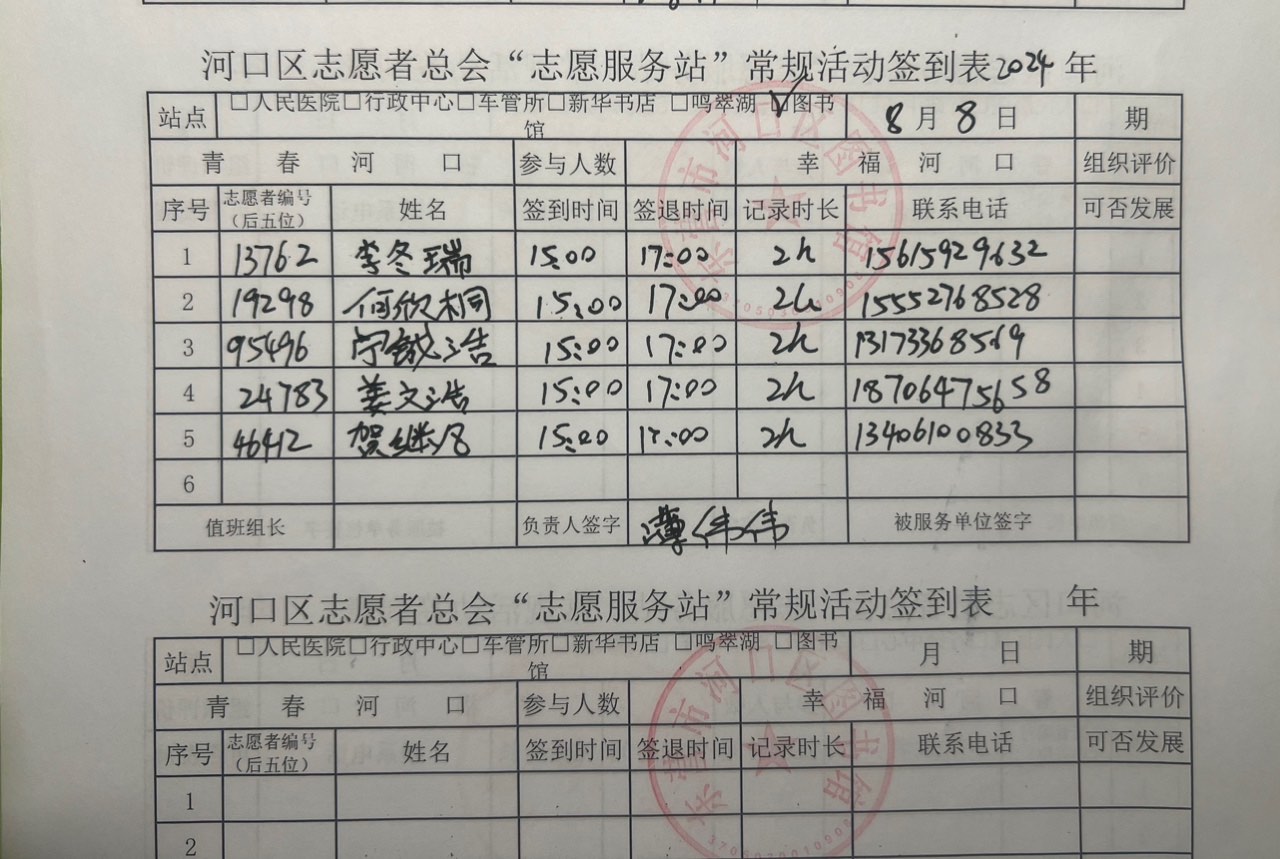 河口区志愿者总会“志愿服务站”常规活动签到表2024年
站点 □人民医院□行政中心□车管所□新华书店 □鸣翠湖 ☑图书馆 8月8日 期
青春河口 参与人数 幸福河口 组织评价
序号 志愿者编号（后五位） 姓名 签到时间 签退时间 记录时长 联系电话 可否发展
1 13762 李冬瑞 15:00 17:00 2h 15615929632
2 19298 何欣桐 15:00 17:00 2h 15552768528
3 95496 宁毓浩 15:00 17:00 2h 13173368569
4 24783 姜文浩 15:00 17:00 2h 18706475658
5 46412 贺继 15:00 17:00 2h 13406100833
6
值班组长 负责人签字 薄伟伟 被服务单位签字
河口区志愿者总会“志愿服务站”常规活动签到表 年
站点 □人民医院□行政中心□车管所□新华书店 □鸣翠湖 □图书馆 月 日 期
青春河口 参与人数 幸福河口 组织评价
序号 志愿者编号（后五位） 姓名 签到时间 签退时间 记录时长 联系电话 可否发展
1
2
东营市河口区图书馆
东营市河口区图书馆